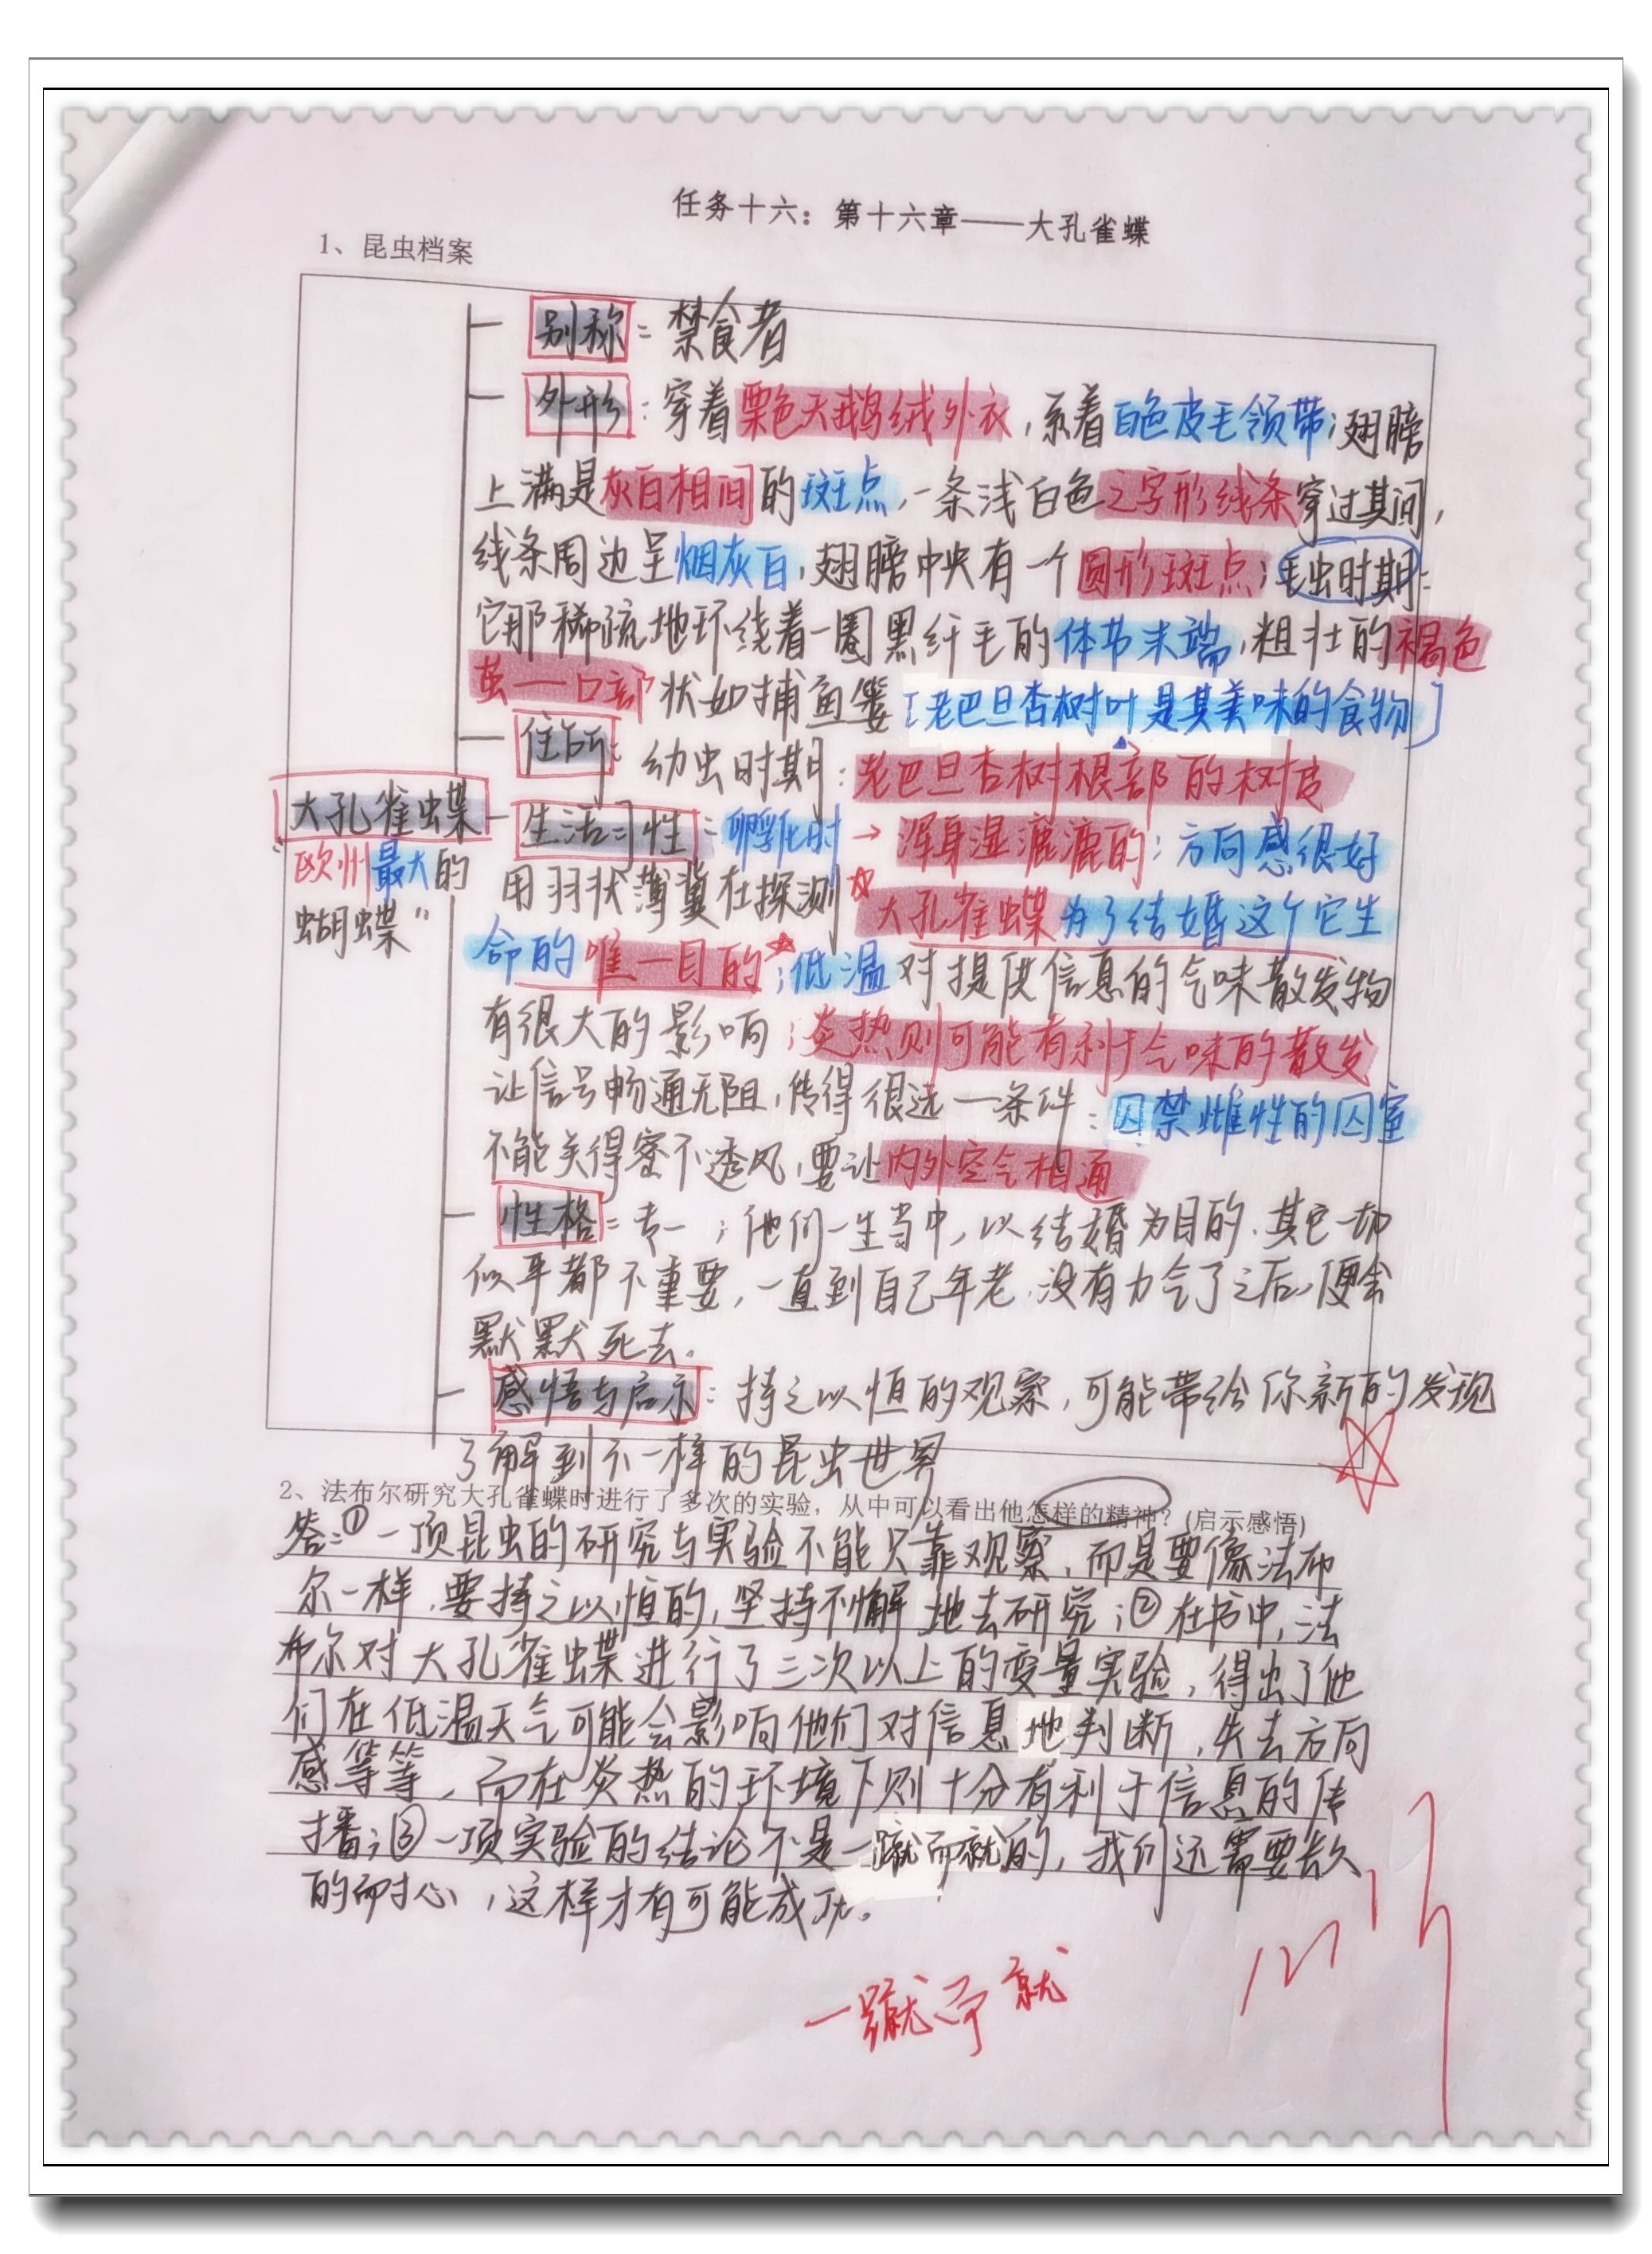 任务十六：第十六章——大孔雀蝶
1、昆虫档案
别称：禁食者
外形：穿着栗色天鹅绒外衣，系着白色皮毛领带；翅膀
上满是灰白相间的斑点，一条浅白色之字形线条穿过其间，
线条周边呈烟灰白，翅膀中央有一个圆形斑点；毛虫时期：
它那稀疏地环绕着一圈黑纤毛的体节末端，粗壮的褐色
茧一口部状如捕鱼篓[老巴旦杏树叶是其美味的食物]
住所：幼虫时期：老巴旦杏树根部的树皮
大孔雀蝶
"欧州最大的
蝴蝶"
生活习性：孵化时→浑身湿漉漉的；方向感很好
用羽状薄翼在探测☆大孔雀蝶为了结婚这个它生
命的唯一目的☆；低温对提供信息的气味散发物
有很大的影响；炎热则可能有利于气味的散发
让信号畅通无阻，传得很远一条件：囚禁雌性的囚室
不能关得密不透风，要让内外空气相通
性格：专一；他们一生当中，以结婚为目的，其它一切
似乎都不重要，一直到自己年老，没有力气了之后，便会
默默死去。
感悟与启示：持之以恒的观察，可能带给你新的发现
了解到不一样的昆虫世界
2、法布尔研究大孔雀蝶时进行了多次的实验，从中可以看出他怎样的精神？(启示感悟)
答：①一项昆虫的研究与实验不能只靠观察，而是要像法布
尔一样，要持之以恒的，坚持不懈地去研究；②在书中，法
布尔对大孔雀蝶进行了三次以上的变量实验，得出了他
们在低温天气可能会影响他们对信息地判断，失去方向
感等等，而在炎热的环境下则十分有利于信息的传
播；③一项实验的结论不是一蹴而就的，我们还需要长久
的耐心，这样才有可能成功。
一蹴而就